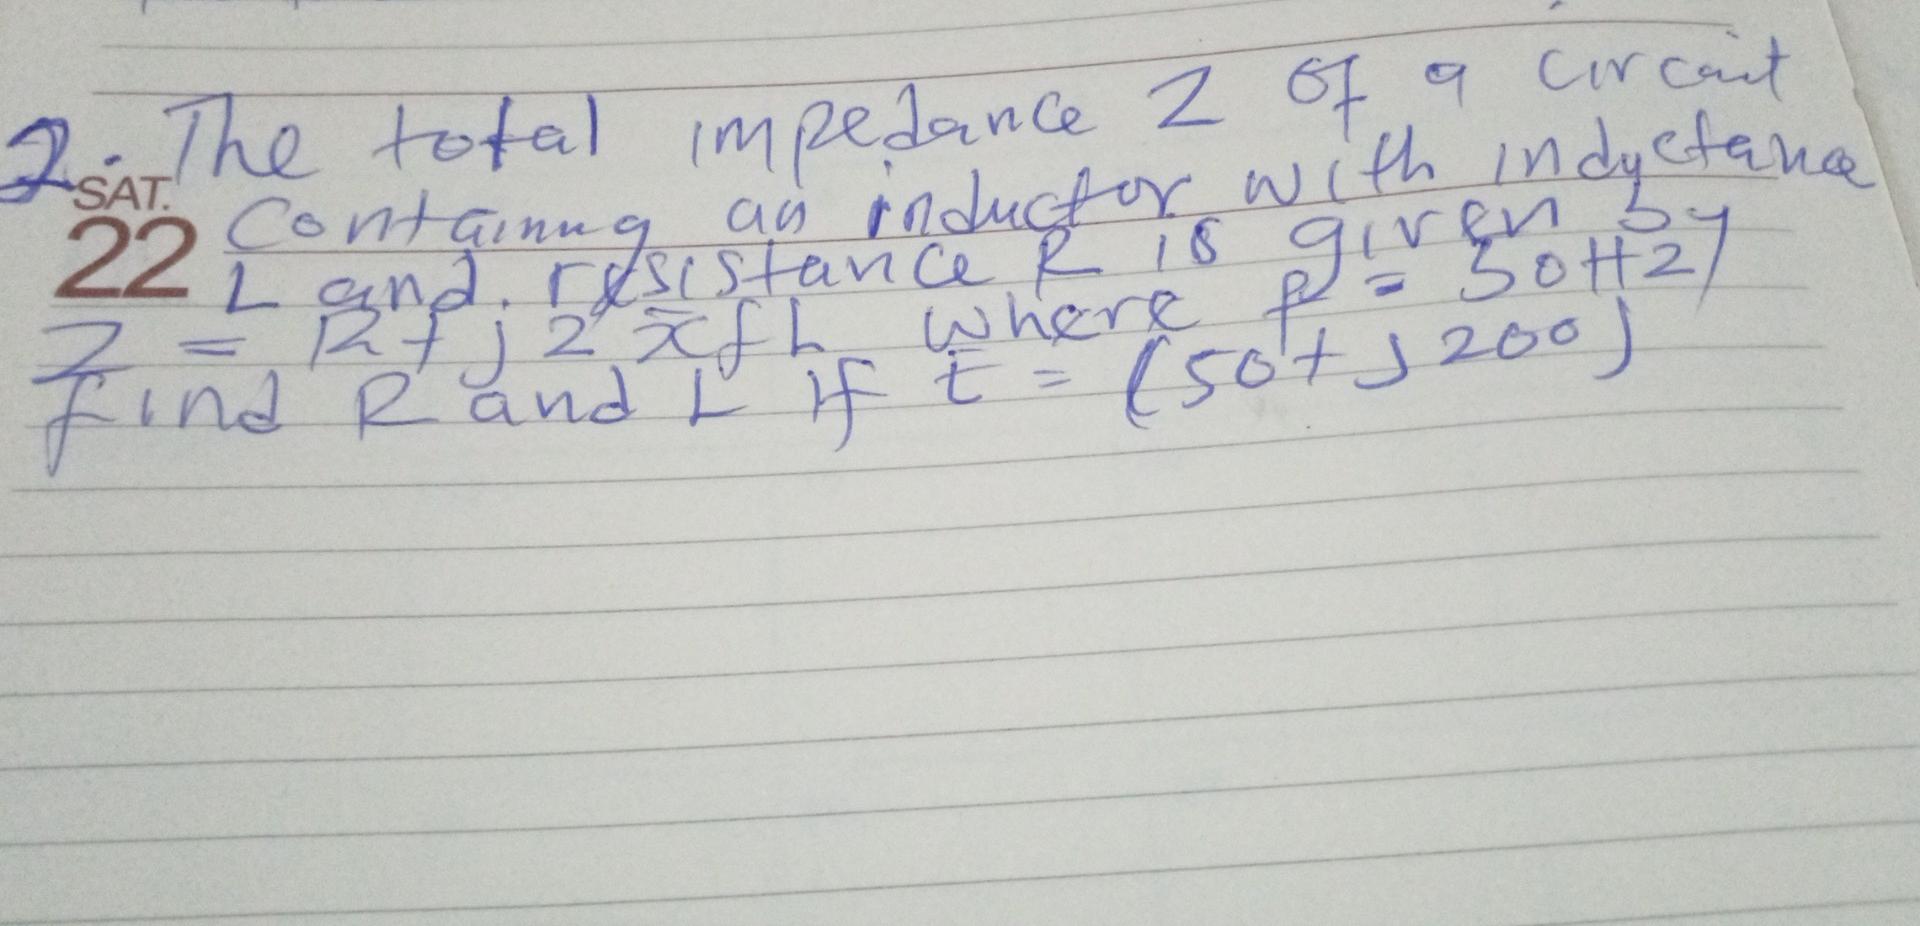 2. The total impedance Z of a circuit
SAT.
22
Containing an inductor with inductance
L and resistance R is given by
Z = R + j 2 π f L where f = 50Hz
find R and L if Z = (50 + j 200)